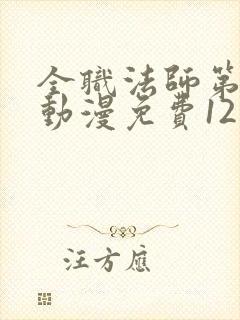 全職法師第
動漫免費12
汪方應